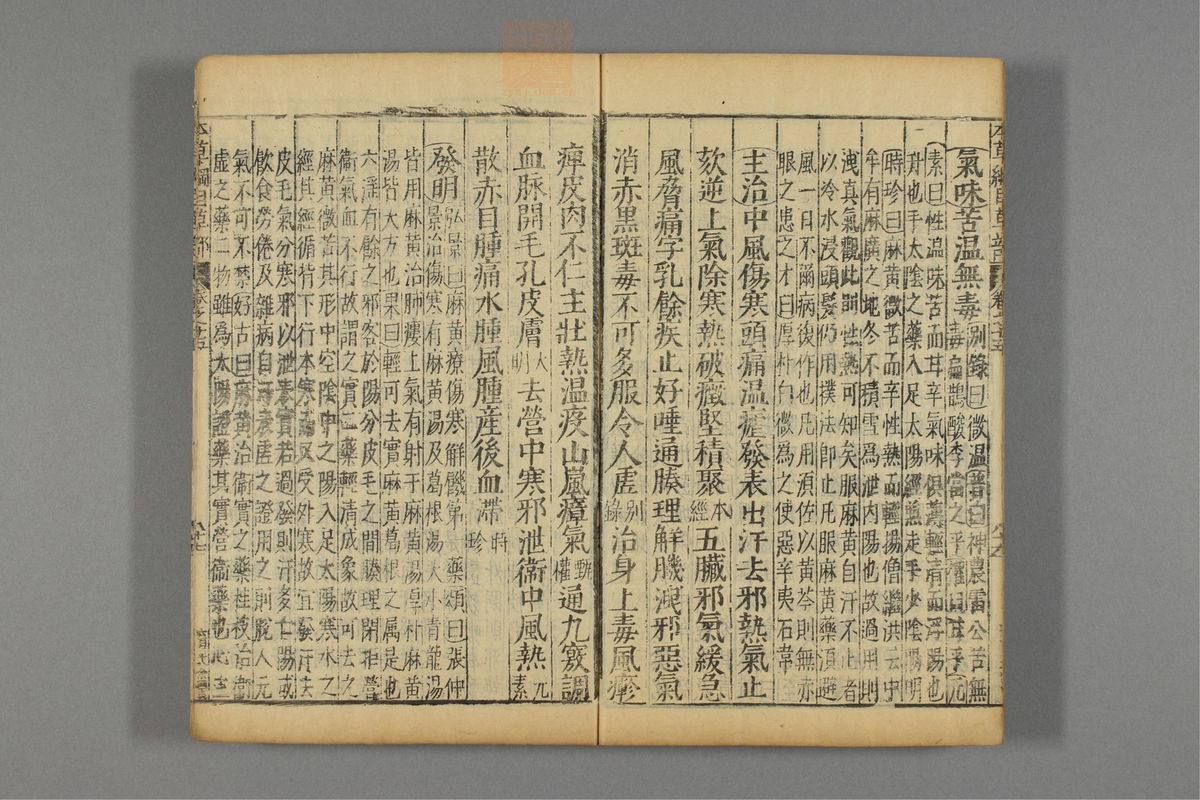 氣味苦溫無毒
別錄曰微溫普曰神農雷公苦無
毒扁鵲酸李當之平權曰甘平元
素曰性溫味苦而甘辛氣味俱薄輕清而浮陽也
升也手太陰之藥入足太陽經兼走手少陰陽明
時珍曰麻黃微苦而辛性熱而輕揚僧繼洪云中
牟有麻黃之地冬不積雪爲泄内陽也故過用則
洩真氣觀此則性熱可知矣服麻黃自汗不止者
以冷水浸頭髮仍用撲法即止凡服麻黃藥須避
風一日不爾病復作也凡用須佐以黃芩則無赤
眼之患之才曰厚朴白微爲之使惡辛夷石韋
主治中風傷寒頭痛溫瘧發表出汗去邪熱氣止
欬逆上氣除寒熱破癥堅積聚本經五臟邪氣緩急
風脅痛字乳餘疾止好唾通腠理解肌洩邪惡氣
消赤黑斑毒不可多服令人虛別錄治身上毒風
痺皮肉不仁主壯熱温疫山嵐瘴氣甄權通九竅調
血脉開毛孔皮膚大明去營中寒邪泄衛中風熱元素
散赤目腫痛水腫風腫産後血滯時珍
發明
弘景曰麻黃療傷寒解肌第一藥頌曰張仲
景治傷寒有麻黃湯及葛根湯大小青龍湯
皆用麻黃治肺痿上氣有射干麻黃湯厚朴麻黃
湯皆大方也杲曰輕可去實麻黃葛根之屬是也
六淫有餘之邪客於陽分皮毛之間腠理閉拒營
衛氣血不行故謂之實二藥輕清成象故可去之
麻黃微苦其形中空陰中之陽入足太陽寒水之
經其經循背下行本寒而又受外寒故宜發汗去
皮毛氣分寒邪以泄表實若過發則汗多亡陽或
飲食勞倦及雜病自汗表虛之證用之則脫人元
氣不可不禁好古曰麻黃治衛實之藥桂枝治衛
虛之藥二物雖爲太陽證藥其實營衛藥也心主